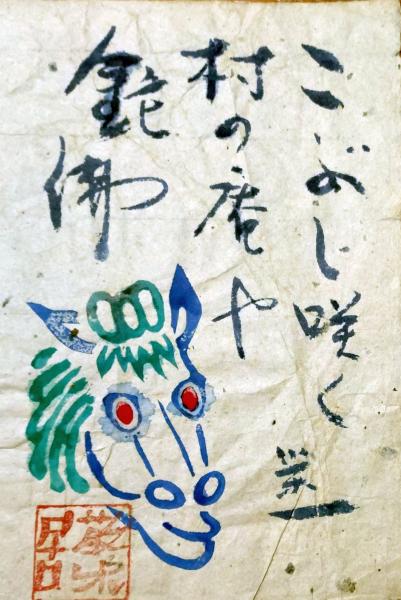 こぶし咲く
村の庵や
鉈佛
栄一